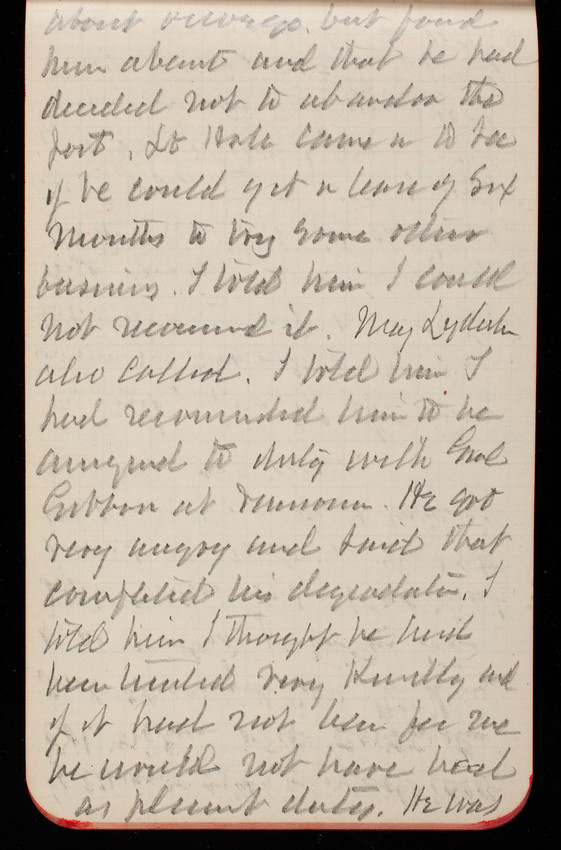 about but found
him absent and that he had
decided not to abandon the
post. Lt Hole came in to see
if he could get a leave of Six
Months to try some other
business. I told him I could
not recommend it. Maj Lydecker
also called. I told him I
had recommended him to be
assigned to duty with Genl
Gibbon at He got
very angry and said that
completed his degradation. I
told him I thought he had
been treated very Kindly and
if it had not been for me
he would not have had
as pleasant duty. He was